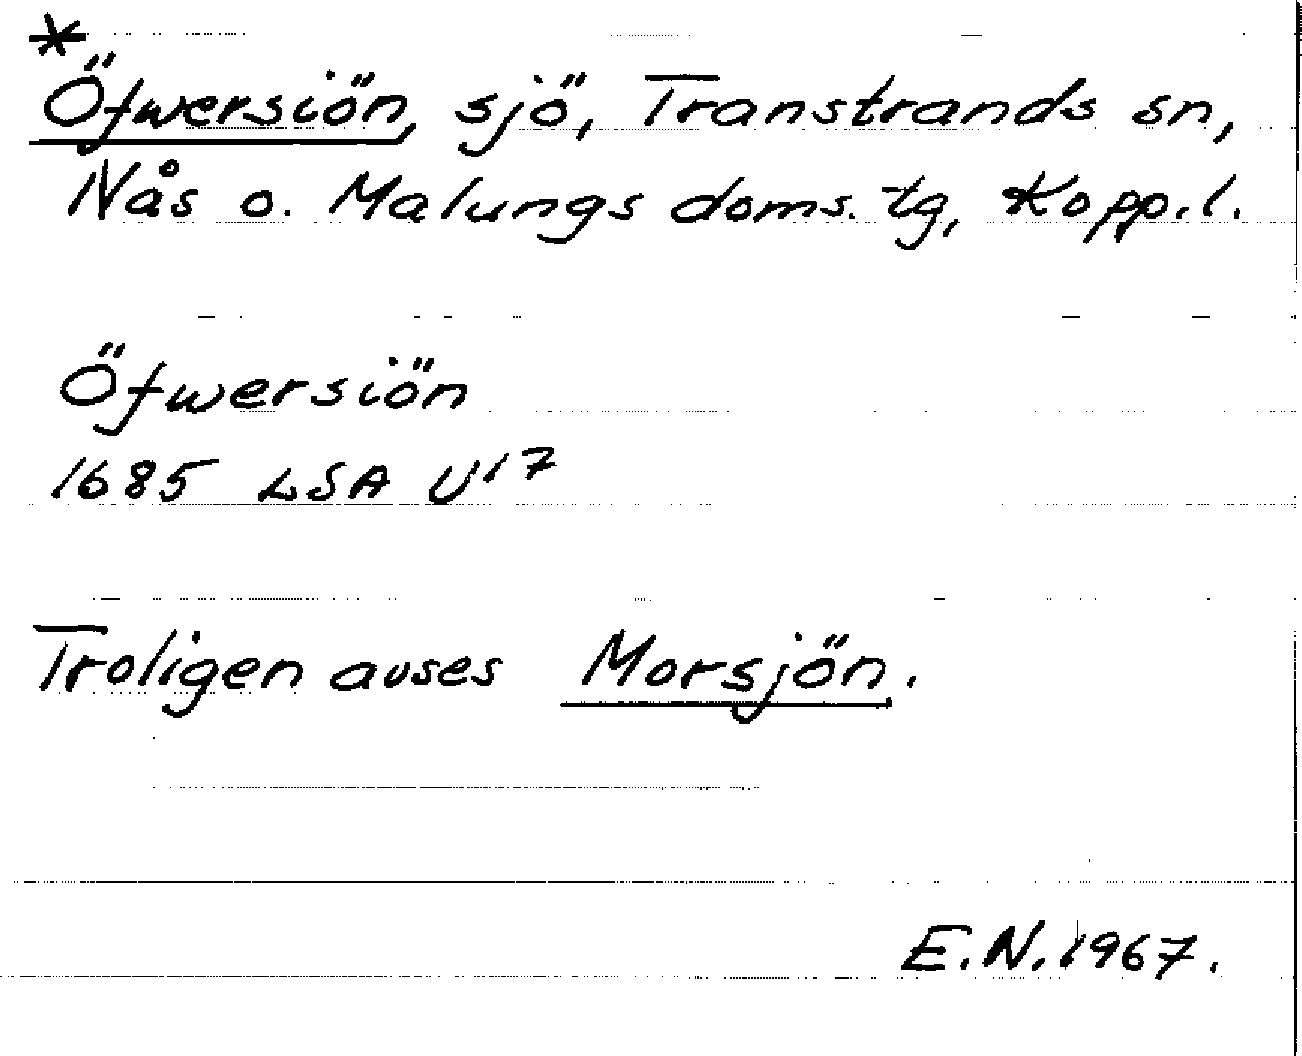 *
Öfwersiön, sjö, Transtrands sn,
Nås o. Malungs doms. tg, Kopp.l.
Öfwersiön
1685 LSA U17
Troligen avses Morsjön.
E.N. 1967.